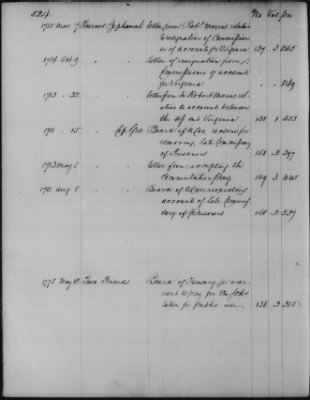 524 No Vol Pa
1785 Mar 7 Turner Zephaniah letter from Robt Morris relative
to resignation of Commissioner
of accounts for Virginia 137
1784 Oct 9 " " letter of resignation from
Commissioner of accounts
for Virginia
1783 " 22 " " letter from to Robert Morris rel-
ative to accounts between
the US and Virginia 138 1 433
" 15 Board of War reasons for
removing, late Commissary
of Prisoners 148 2 247
1783 May 1 " " letter from accepting the
Commutation pay 149 3 445
1781 Aug 8 " " Board of War respecting
accounts of late Commis-
sary of prisoners 148 2 237
1778 May 15 Two Friends Board of Treasury for war-
rant to pay for the
taken for public use 136 2 255